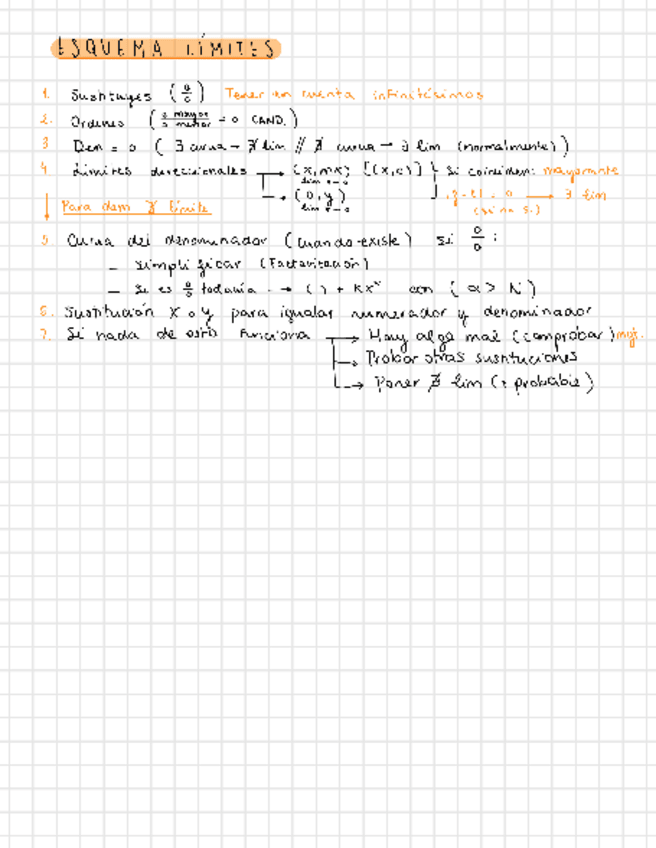 ESQUEMA LÍMITES
1. Sustituyes (0/0) Tener en cuenta infinitésimos
2. Ordenes (o mayor/o menor = 0 CAND.)
3 Den = 0 (∃ curva → ∄ lim // ∄ curva → ∃ lim (normalmente))
4 Límites direccionales → (x, mx) [(x, 0)] } Si coinciden: mayorante
lim x→0
→ (0, y) |f - l| = 0 → ∃ lim
lim y→0 (si no S.)
Para dem ∄ límite
5. Curva del denominador (cuando existe) si 0/0 :
– simplificar (factorización)
– si es 0/0 todavía → ( ) + Kx^α con (α > N)
6. Sustitución x o y para igualar numerador y denominador
7. Si nada de esto funciona → Hay algo mal (comprobar)
→ Probar otras sustituciones
→ Poner ∄ lim (+ probable)